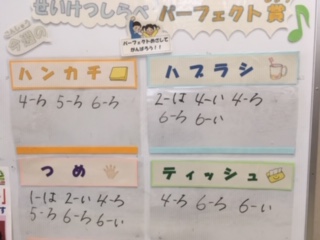 せいけつしらべ パーフェクト賞
パーフェクトめざして
がんばろう!!
ハンカチ
4-ろ 5-ろ 6-ろ
ハブラシ
2-は 4-い 4-ろ
6-ろ 6-い
つめ
1-は 2-い 4-ろ
5-ろ 6-ろ 6-い
ティッシュ
4-ろ 6-ろ 6-い